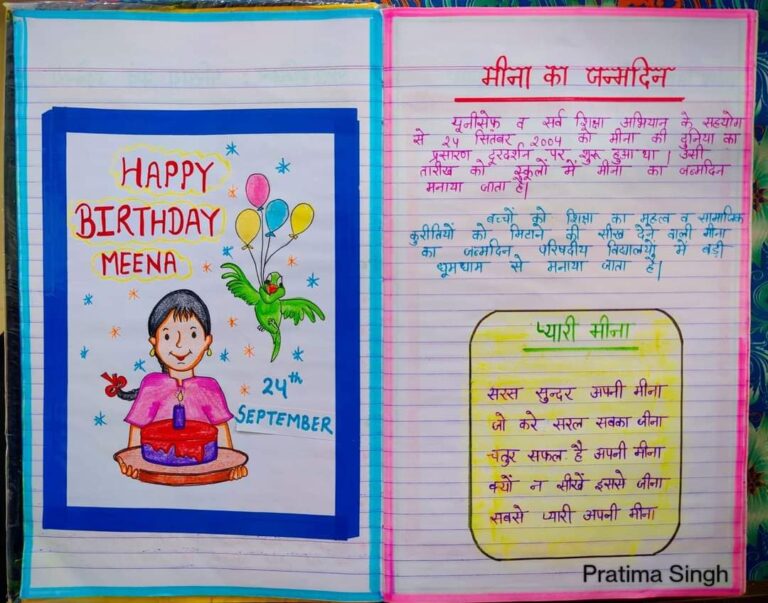 HAPPY
BIRTHDAY
MEENA
24th
SEPTEMBER
मीना का जन्मदिन
यूनीसेफ व सर्व शिक्षा अभियान के सहयोग
से 24 सितंबर 2004 को मीना की दुनिया का
प्रसारण दूरदर्शन पर शुरू हुआ था | उसी
तारीख को स्कूलों में मीना का जन्मदिन
मनाया जाता है|
बच्चों को शिक्षा का महत्व व सामाजिक
कुरीतियों को मिटाने की सीख देने वाली मीना
का जन्मदिन परिषदीय विद्यालयों में बड़ी
धूमधाम से मनाया जाता है|
प्यारी मीना
सरस सुन्दर अपनी मीना
जो करे सरल सबका जीना
चतुर सफल है अपनी मीना
क्यों न सीखें इससे जीना
सबसे प्यारी अपनी मीना
Pratima Singh